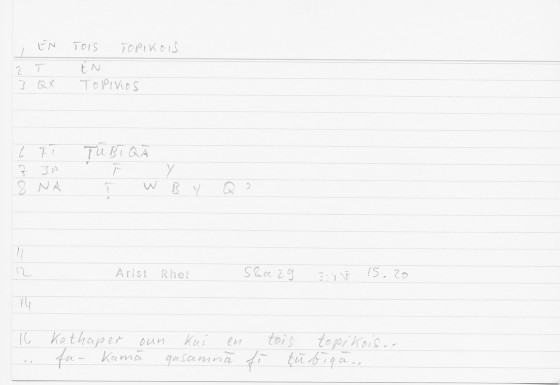 1 ĖN TOIS TOPIKOIS
2 T ĖN
3 QX TOPIKOS
6 FĪ ṬŪBĪQĀ
7 JP Ṭ Y
8 NA Ṭ W B Y Q
11
12 Arist Rhet 58a29 15.20
14
16 kathaper oun kai en tois topikois..
.. fa- kamā qasamnā fī ṭūbīqā..